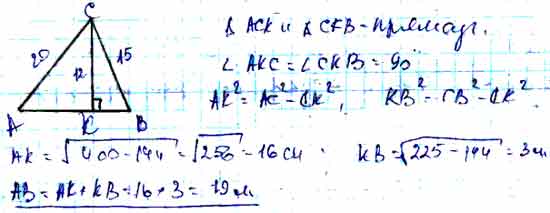 C
20 12 15
A K B
Δ ACK и Δ CKB - прямоуг.
∠ AKC = ∠CKB = 90°
AK² = AC² - CK², KB² = CB² - CK²
AK = √400-144 = √256 = 16 см KB = √225-144 = 3 см
AB = AK + KB = 16 + 3 = 19 см